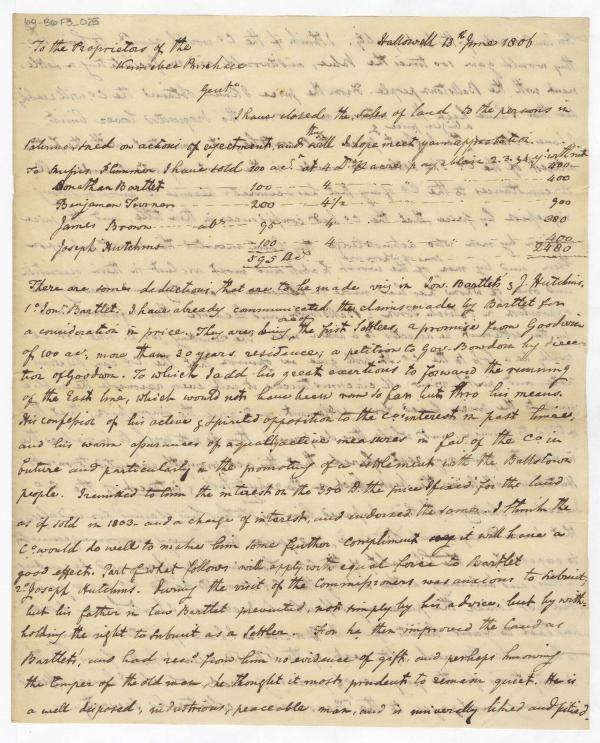 69-B6F3_025
To the Proprietors of the Hallowell 13th June 1806
Kennebec Purchase
Gentn
I have closed the sales of land to the persons in
Palermo, tried on actions of ejectment, and they will I hope meet your approbation.
To Rufus Plummer I have sold 100 acs at 4 Ds acre payable in 2. 3. & 4 ys 400
Jonathan Bartlet 100 4 400
Benjamin Turner 200 4 1/2 900
James Brown abt 95 4 380
Joseph Hutchins 100 4 400
595 Acs 2480
There are some deductions that are to be made viz in Jon. Bartlet's & J. Hutchins.
1o Jona Bartlet. I have already communicated the claims made by Bartlet for
a consideration in price. They are, being one of the first settlers, a promise from Goodwin
of 100 acs, more than 20 years residence, a petition to Gov. Bowdoin by direc-
tion of Goodwin. To which I add his great exertions to forward the running
of the East line, which would not have been run so far but thro his means.
His confession of his active & spirited opposition to the Cos interest in past times,
and his warm assurances of equally active measures in fav. of the Co in
future and particularly in the promoting of a settlement with the Ballstown
people. I remitted to him the interest on the 350 D. the price affixed for the land
as if sold in 1803. and a charge of interest, and indorsed the same. I think the
Co would do well to make him some further compliment it will have a
good effect. Part of what follows will apply with equal force to Bartlet
2o Joseph Hutchins. During the visit of the Commissioners was anxious to submit,
but his father in law Bartlet prevented, not simply by his advice, but by with-
holding the right to submit as a settler. For he then improved the land as
Bartlets', and had recd from him no evidence of gift, and perhaps knowing
the temper of the old man, he thought it most prudent to remain quiet. He is
a well disposed, industrious, peaceable man, and is univerally liked and pitied.